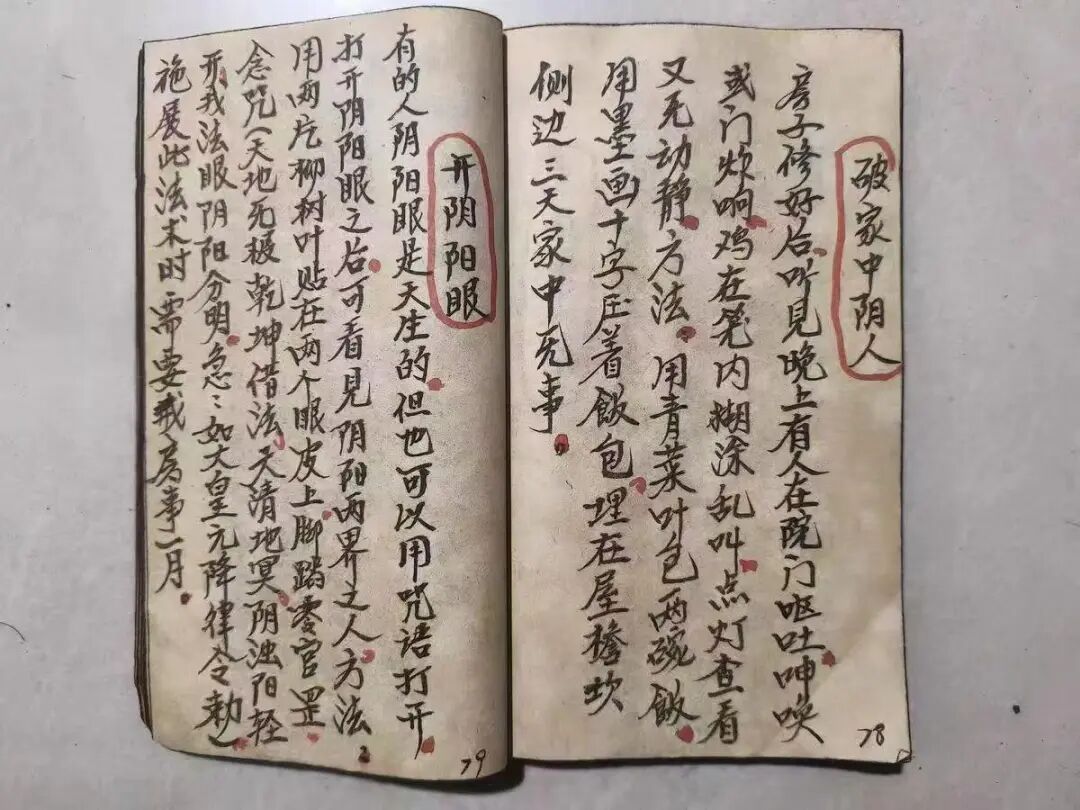 破家中阴人
房子修好后听见晚上有人在院门呕吐呻唤
或门炸响.鸡在笼内糊涂乱叫.点灯查看
又无动静.方法.用青菜叶包两碗飯.
用墨画十字压着飯包.埋在屋檐坎
侧边三天家中无事.
78
开阴阳眼
有的人阴阳眼是天生的.但也可以用咒语打开.
打开阴阳眼之后.可看見阴阳两界之人.方法.
用两片柳树叶贴在两个眼皮上.脚踏零官罡.
念咒(天地无极乾坤借法.天清地冥.阴浊阳轻
开我法眼阴阳分明.急:如大皇元降律令勅)
施展此法术时需要戒房事一月.
79